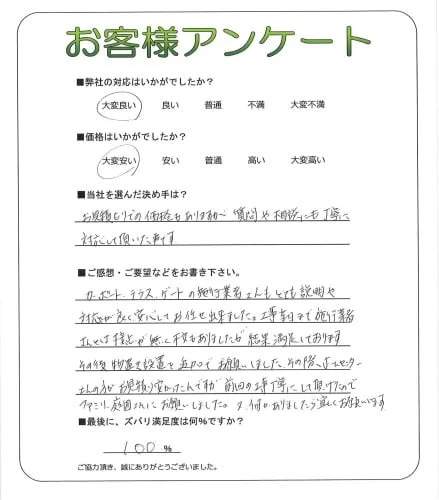 お客様アンケート
■弊社の対応はいかがでしたか?
大変良い 良い 普通 不満 大変不満
■価格はいかがでしたか?
大変安い 安い 普通 高い 大変高い
■当社を選んだ決め手は?
お見積もりでの価格もありますが 質問や相談にも丁寧に
対応して頂いた事です
■ご感想・ご要望などをお書き下さい。
カーポート、テラス、ゲートの施行業者さんもとても説明や
対応が良く安心してお任せ出来ました。工事当日まで施行業者
さんとは接点が無く不安もありましたが結果満足しております
その後 物置を設置を追加でお願いしました。その際、ホームセンター
さんの方がお見積り安かったんですが 前回の工事丁寧にして頂けたので
ファミリー庭園さんにお願いしました。又、何かありましたら宜しくお願いします
■最後に、ズバリ満足度は何%ですか?
100 %
ご協力頂き、誠にありがとうございました。